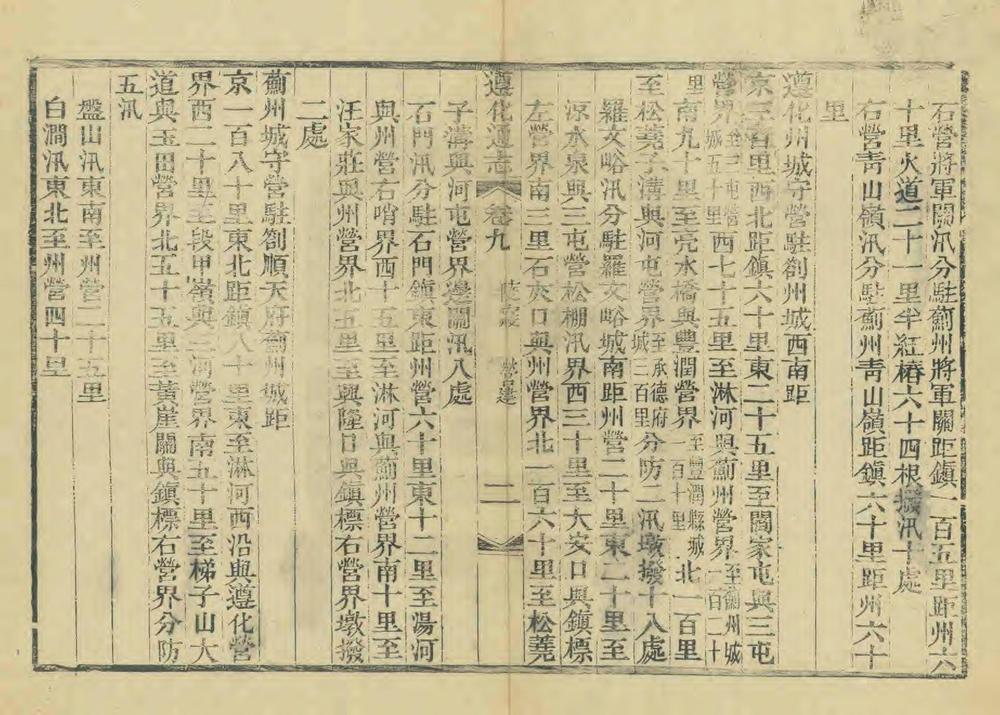 右營將軍關汛分駐薊州將軍關距鎮一百五里距州六
十里火道二十一里半紅樁六十四根撥汛十處
右營靑山嶺汛分駐薊州靑山嶺距鎮六十里距州六十
里
遵化州城守營駐劄州城西南距
京三百里西北距鎮六十里東二十五里至閻家屯與三屯
營界至三屯營城五十里西七十五里至淋河與薊州營界至薊州城一百二十
里南九十里至亮水橋與豐潤營界至豐潤縣城一百十里北一百里
至松蕘子溝與河屯營界至承德府城二百里分防二汛墩撥十八處
羅文峪汛分駐羅文峪城南距州營二十里東二十里至
涼水泉與三屯營松棚汛界西三十里至大安口與鎮標
左營界南三里石灰口與州營界北一百六十里至松蕘
遵化通志 卷九 營邊 二
子溝與河屯營界邊關汛八處
石門汛分駐石門鎮東距州營六十里東十二里至湯河
與州營右哨界西十五里至淋河與薊州營界南十里至
汪家莊與州營界北五里至興隆口與鎮標右營界墩撥
二處
薊州城守營駐劄順天府薊州城距
京一百八十里東北距鎮八十里東至淋河西沿與遵化營
界西二十里至段甲嶺與三河營界南五十里至梯子山大
道與玉田營界北五十五里至黃崖關與鎮標右營界分防
五汛
盤山汛東南至州營二十五里
白澗汛東北至州營四十里